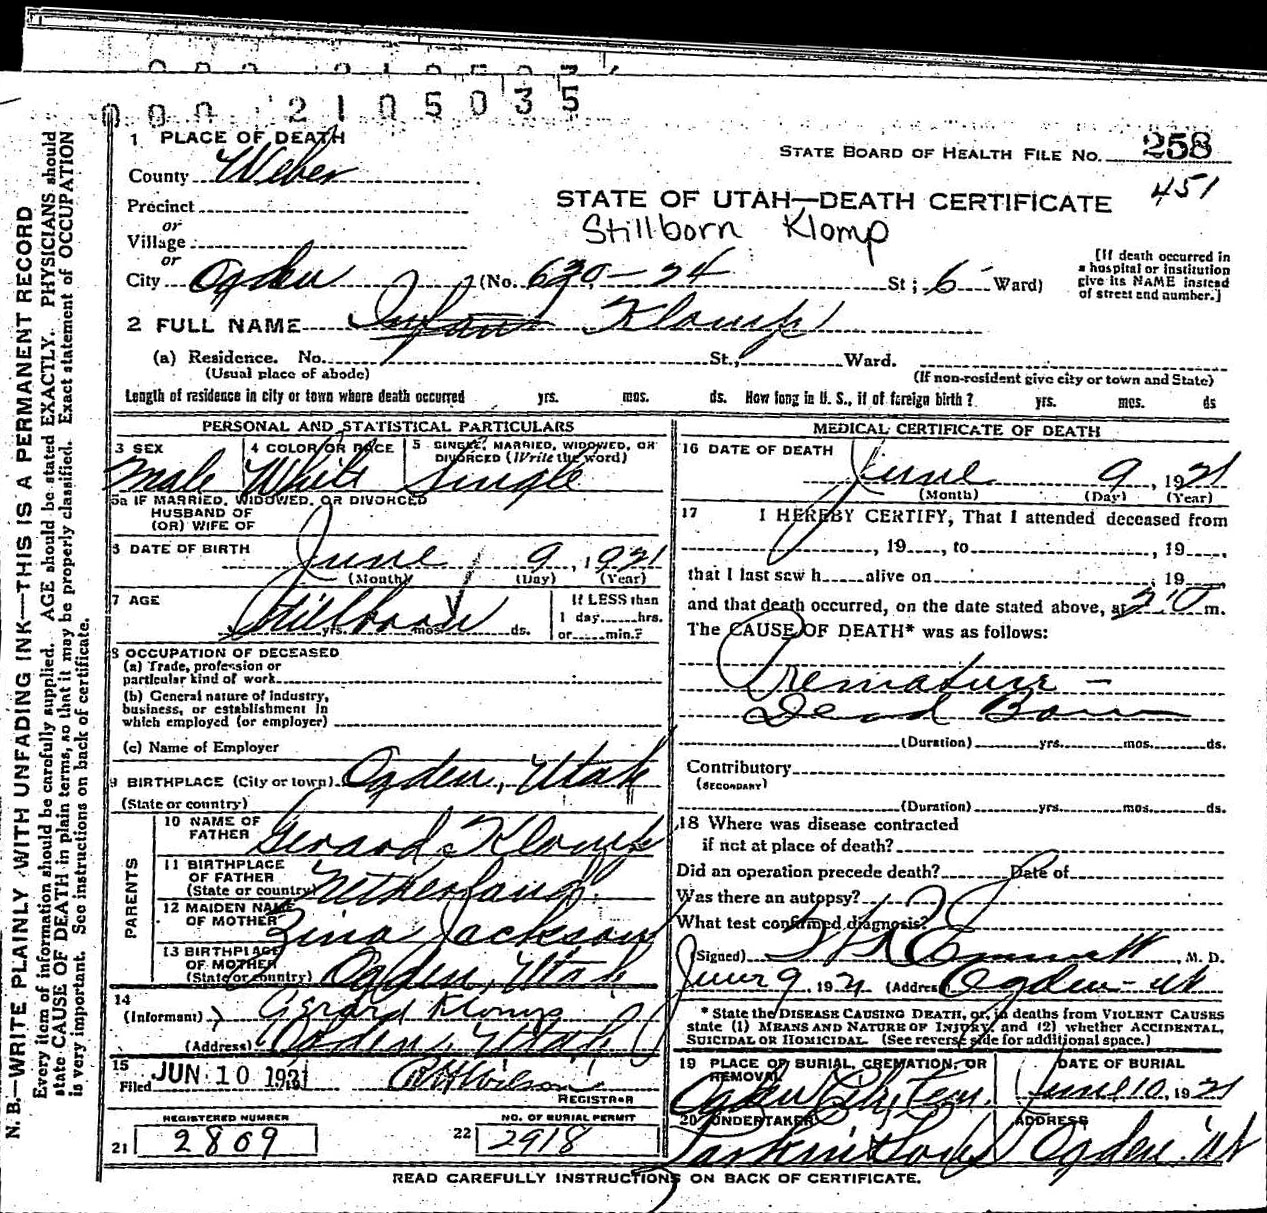 000 2105035
1 PLACE OF DEATH
STATE BOARD OF HEALTH FILE NO. 258
County Weber
451
STATE OF UTAH—DEATH CERTIFICATE
Precinct
or
Stillborn Klomp
Village
or
City Ogden (No. 630-24 St; 6 Ward)
[If death occurred in
a hospital or institution
give its NAME instead
of street and number.]
2 FULL NAME Infant Klomp
(a) Residence. No. St., Ward.
(Usual place of abode) (If non-resident give city or town and State)
Length of residence in city or town where death occurred yrs. mos. ds. How long in U. S., if of foreign birth? yrs. mos. ds
PERSONAL AND STATISTICAL PARTICULARS
3 SEX 4 COLOR OR RACE 5 SINGLE, MARRIED, WIDOWED, OR
DIVORCED (Write the word)
Male White Single
5a IF MARRIED, WIDOWED, OR DIVORCED
HUSBAND OF
(OR) WIFE OF
6 DATE OF BIRTH June 9, 1921
(Month) (Day) (Year)
7 AGE Stillborn
yrs. mos. ds.
If LESS than
1 day hrs.
or min.?
8 OCCUPATION OF DECEASED
(a) Trade, profession or
particular kind of work
(b) General nature of industry,
business, or establishment in
which employed (or employer)
(c) Name of Employer
9 BIRTHPLACE (City or town) Ogden, Utah
(State or country)
PARENTS
10 NAME OF
FATHER Gerard Klomp
11 BIRTHPLACE
OF FATHER
(State or country) Netherlands.
12 MAIDEN NAME
OF MOTHER Zina Jackson
13 BIRTHPLACE
OF MOTHER
(State or country) Ogden, Utah
14
(Informant) Gerard Klomp
(Address) Ogden, Utah
15
Filed JUN 10 1921 Wilson
REGISTRAR
REGISTERED NUMBER NO. OF BURIAL PERMIT
21 2809 22 2918
MEDICAL CERTIFICATE OF DEATH
16 DATE OF DEATH
June 9, 1921
(Month) (Day) (Year)
17 I HEREBY CERTIFY, That I attended deceased from
, 19 , to , 19 ,
that I last saw h alive on , 19
and that death occurred, on the date stated above, at m.
The CAUSE OF DEATH* was as follows:
Premature -
Dead Born
(Duration) yrs. mos. ds.
Contributory
(SECONDARY)
(Duration) yrs. mos. ds.
18 Where was disease contracted
if not at place of death?
Did an operation precede death? Date of
Was there an autopsy?
What test confirmed diagnosis?
(Signed) , M. D.
June 9, 1921 (Address) Ogden - Ut
* State the DISEASE CAUSING DEATH, or, in deaths from VIOLENT CAUSES
state (1) MEANS AND NATURE OF INJURY, and (2) whether ACCIDENTAL,
SUICIDAL OR HOMICIDAL. (See reverse side for additional space.)
19 PLACE OF BURIAL, CREMATION, OR
REMOVAL
DATE OF BURIAL
Ogden City Cem. June 10, 1921
20 UNDERTAKER ADDRESS
Larkin & Sons Ogden Ut
READ CAREFULLY INSTRUCTIONS ON BACK OF CERTIFICATE.
N. B.—WRITE PLAINLY WITH UNFADING INK—THIS IS A PERMANENT RECORD
Every item of information should be carefully supplied. AGE should be stated EXACTLY. PHYSICIANS should
state CAUSE OF DEATH in plain terms, so that it may be properly classified. Exact statement of OCCUPATION
is very important. See instructions on back of certificate.